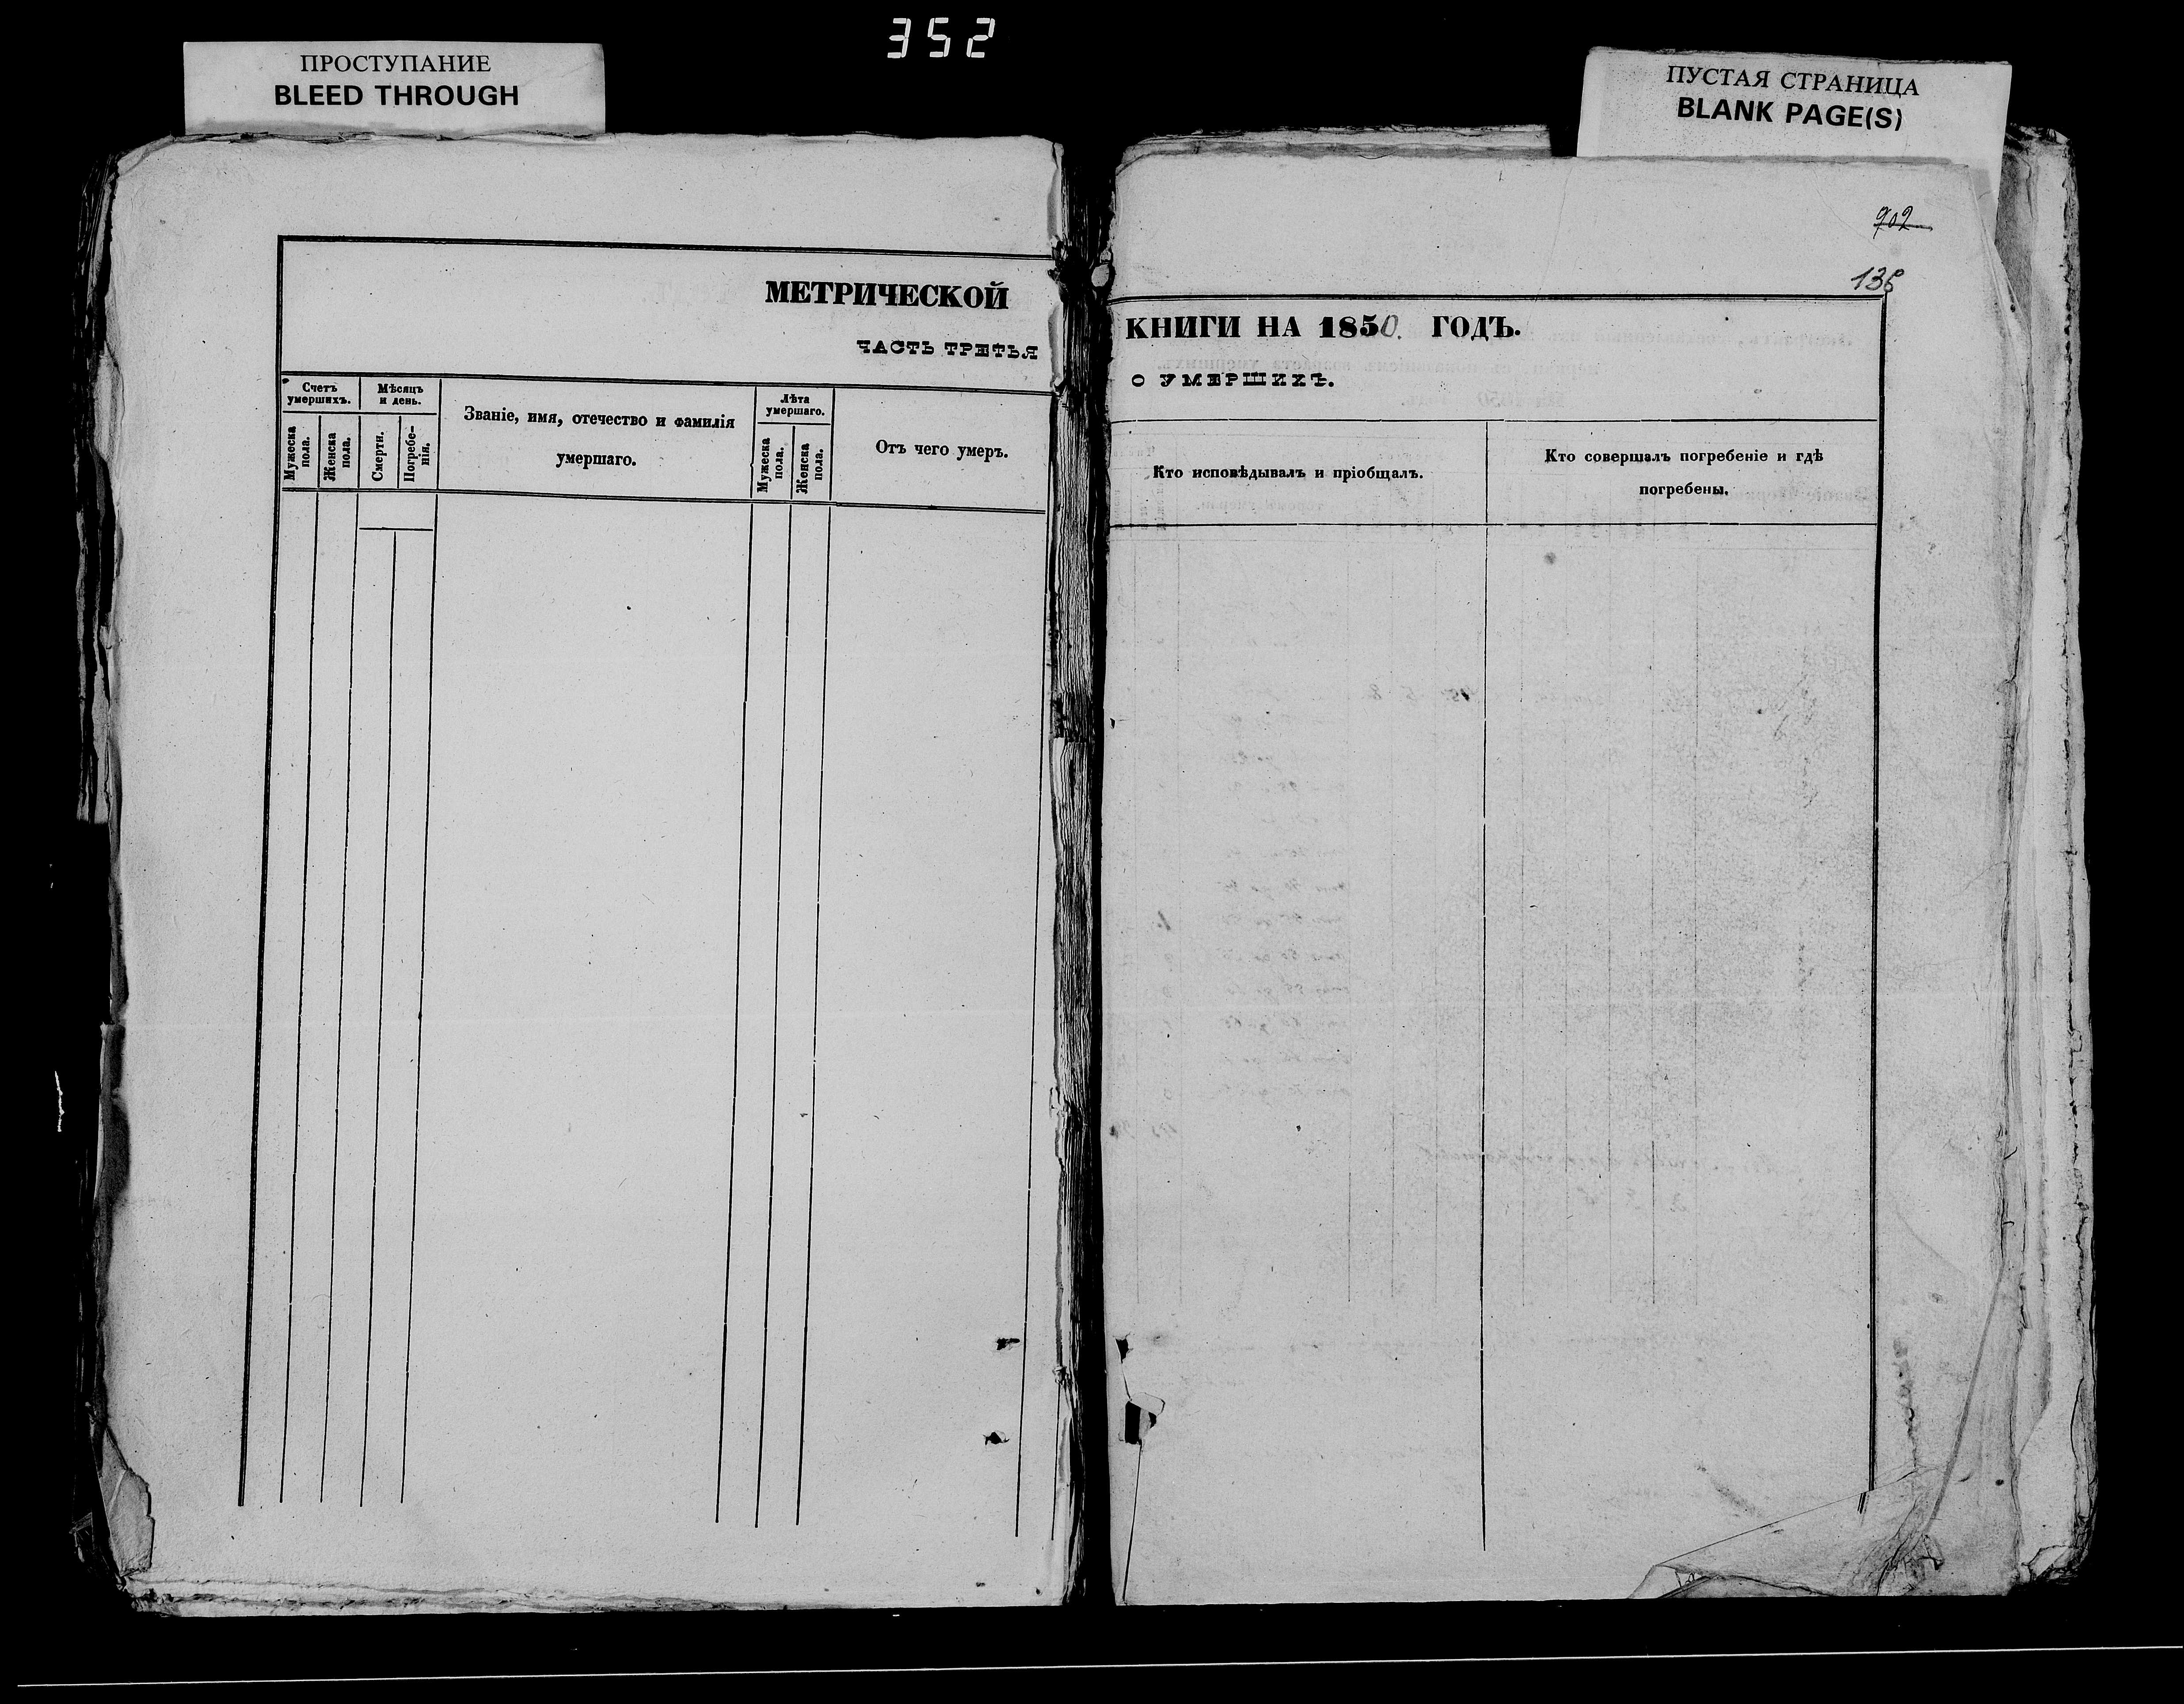 352
ПРОСТУПАНИЕ
BLEED THROUGH
ПУСТАЯ СТРАНИЦА
BLANK PAGE(S)
902
МЕТРИЧЕСКОЙ
ЧАСТЬ ТРЕТЬЯ
Счетъ
умершихъ.
Мужеска
пола.
Женска
пола.
Мѣсяцъ
и день.
Смерти.
Погребе-
нія.
Званіе, имя, отечество и фамилія
умершаго.
Лѣта
умершаго.
Мужеска
пола.
Женска
пола.
Отъ чего умеръ.
КНИГИ НА 1850. ГОДЪ.
О УМЕРШИХЪ.
Кто исповѣдывалъ и пріобщалъ.
Кто совершалъ погребеніе и гдѣ
погребены.